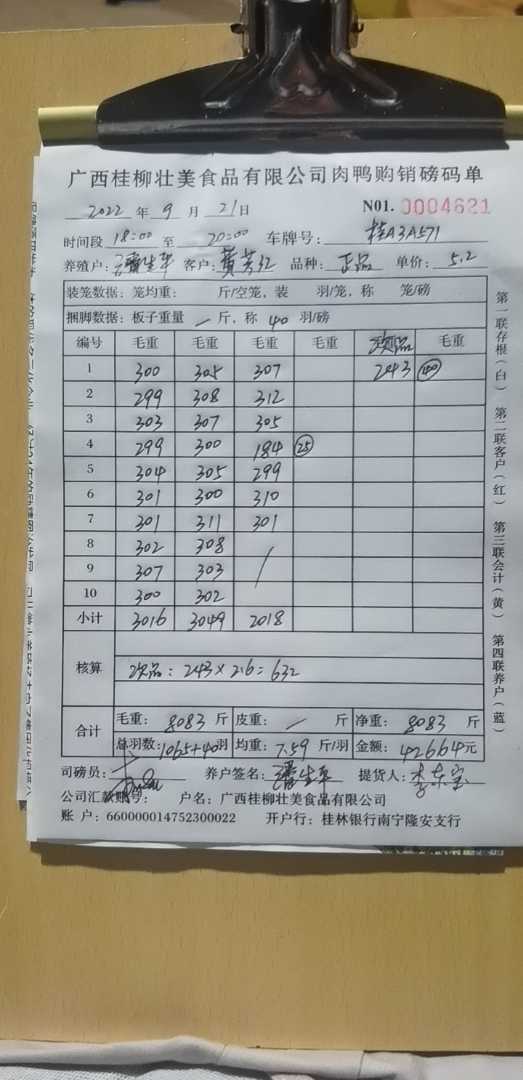 广西桂柳壮美食品有限公司肉鸭购销磅码单
2022 年 9 月 21日 NO1. 0004621
时间段 18:00 至 20:00 车牌号: 桂A3A571
养殖户: 客户: 黄芳红 品种: 正品 单价: 5.2
装笼数据: 笼均重: 斤/空笼, 装 羽/笼, 称 笼/磅
捆脚数据: 板子重量 / 斤, 称 40 羽/磅
编号 毛重 毛重 毛重 毛重 次品 毛重
1 300 305 307 243 40
2 299 308 312
3 303 307 305
4 299 300 184 25
5 304 305 299
6 301 300 310
7 301 311 301
8 302 308 /
9 307 303
10 300 302
小计 3016 3049 2018
核算 次品: 243×2.6=632
合计 毛重: 8083 斤 皮重: / 斤 净重: 8083 斤
总羽数: 1065+40羽 均重: 7.59 斤/羽 金额: 42664元
司磅员: 养户签名: 提货人: 李东宝
公司汇款账号: 户名: 广西桂柳壮美食品有限公司
账 户: 660000014752300022 开户行: 桂林银行南宁隆安支行
第一联存根(白) 第二联客户(红) 第三联会计(黄) 第四联养户(蓝)